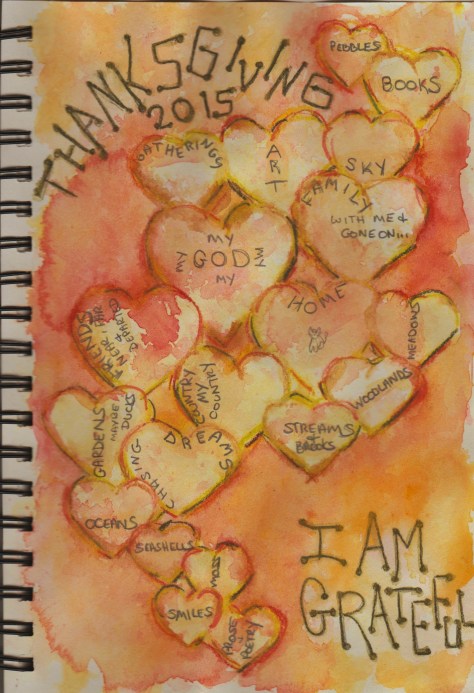 THANKSGIVING
2015
PEBBLES
BOOKS
GATHERINGS
ART
SKY
FAMILY
WITH ME &
GONE ON...
MY
MY GOD MY
MY
HOME
FRIENDS
NEAR, FAR
&
DEPARTED
MEADOWS
COUNTRY
MY
COUNTRY
WOODLANDS
GARDENS
DUCKS
STREAMS
&
BROOKS
CHASING DREAMS
OCEANS
SEASHELLS
MOSS
SMILES
PROSE
POETRY
I AM
GRATEFUL